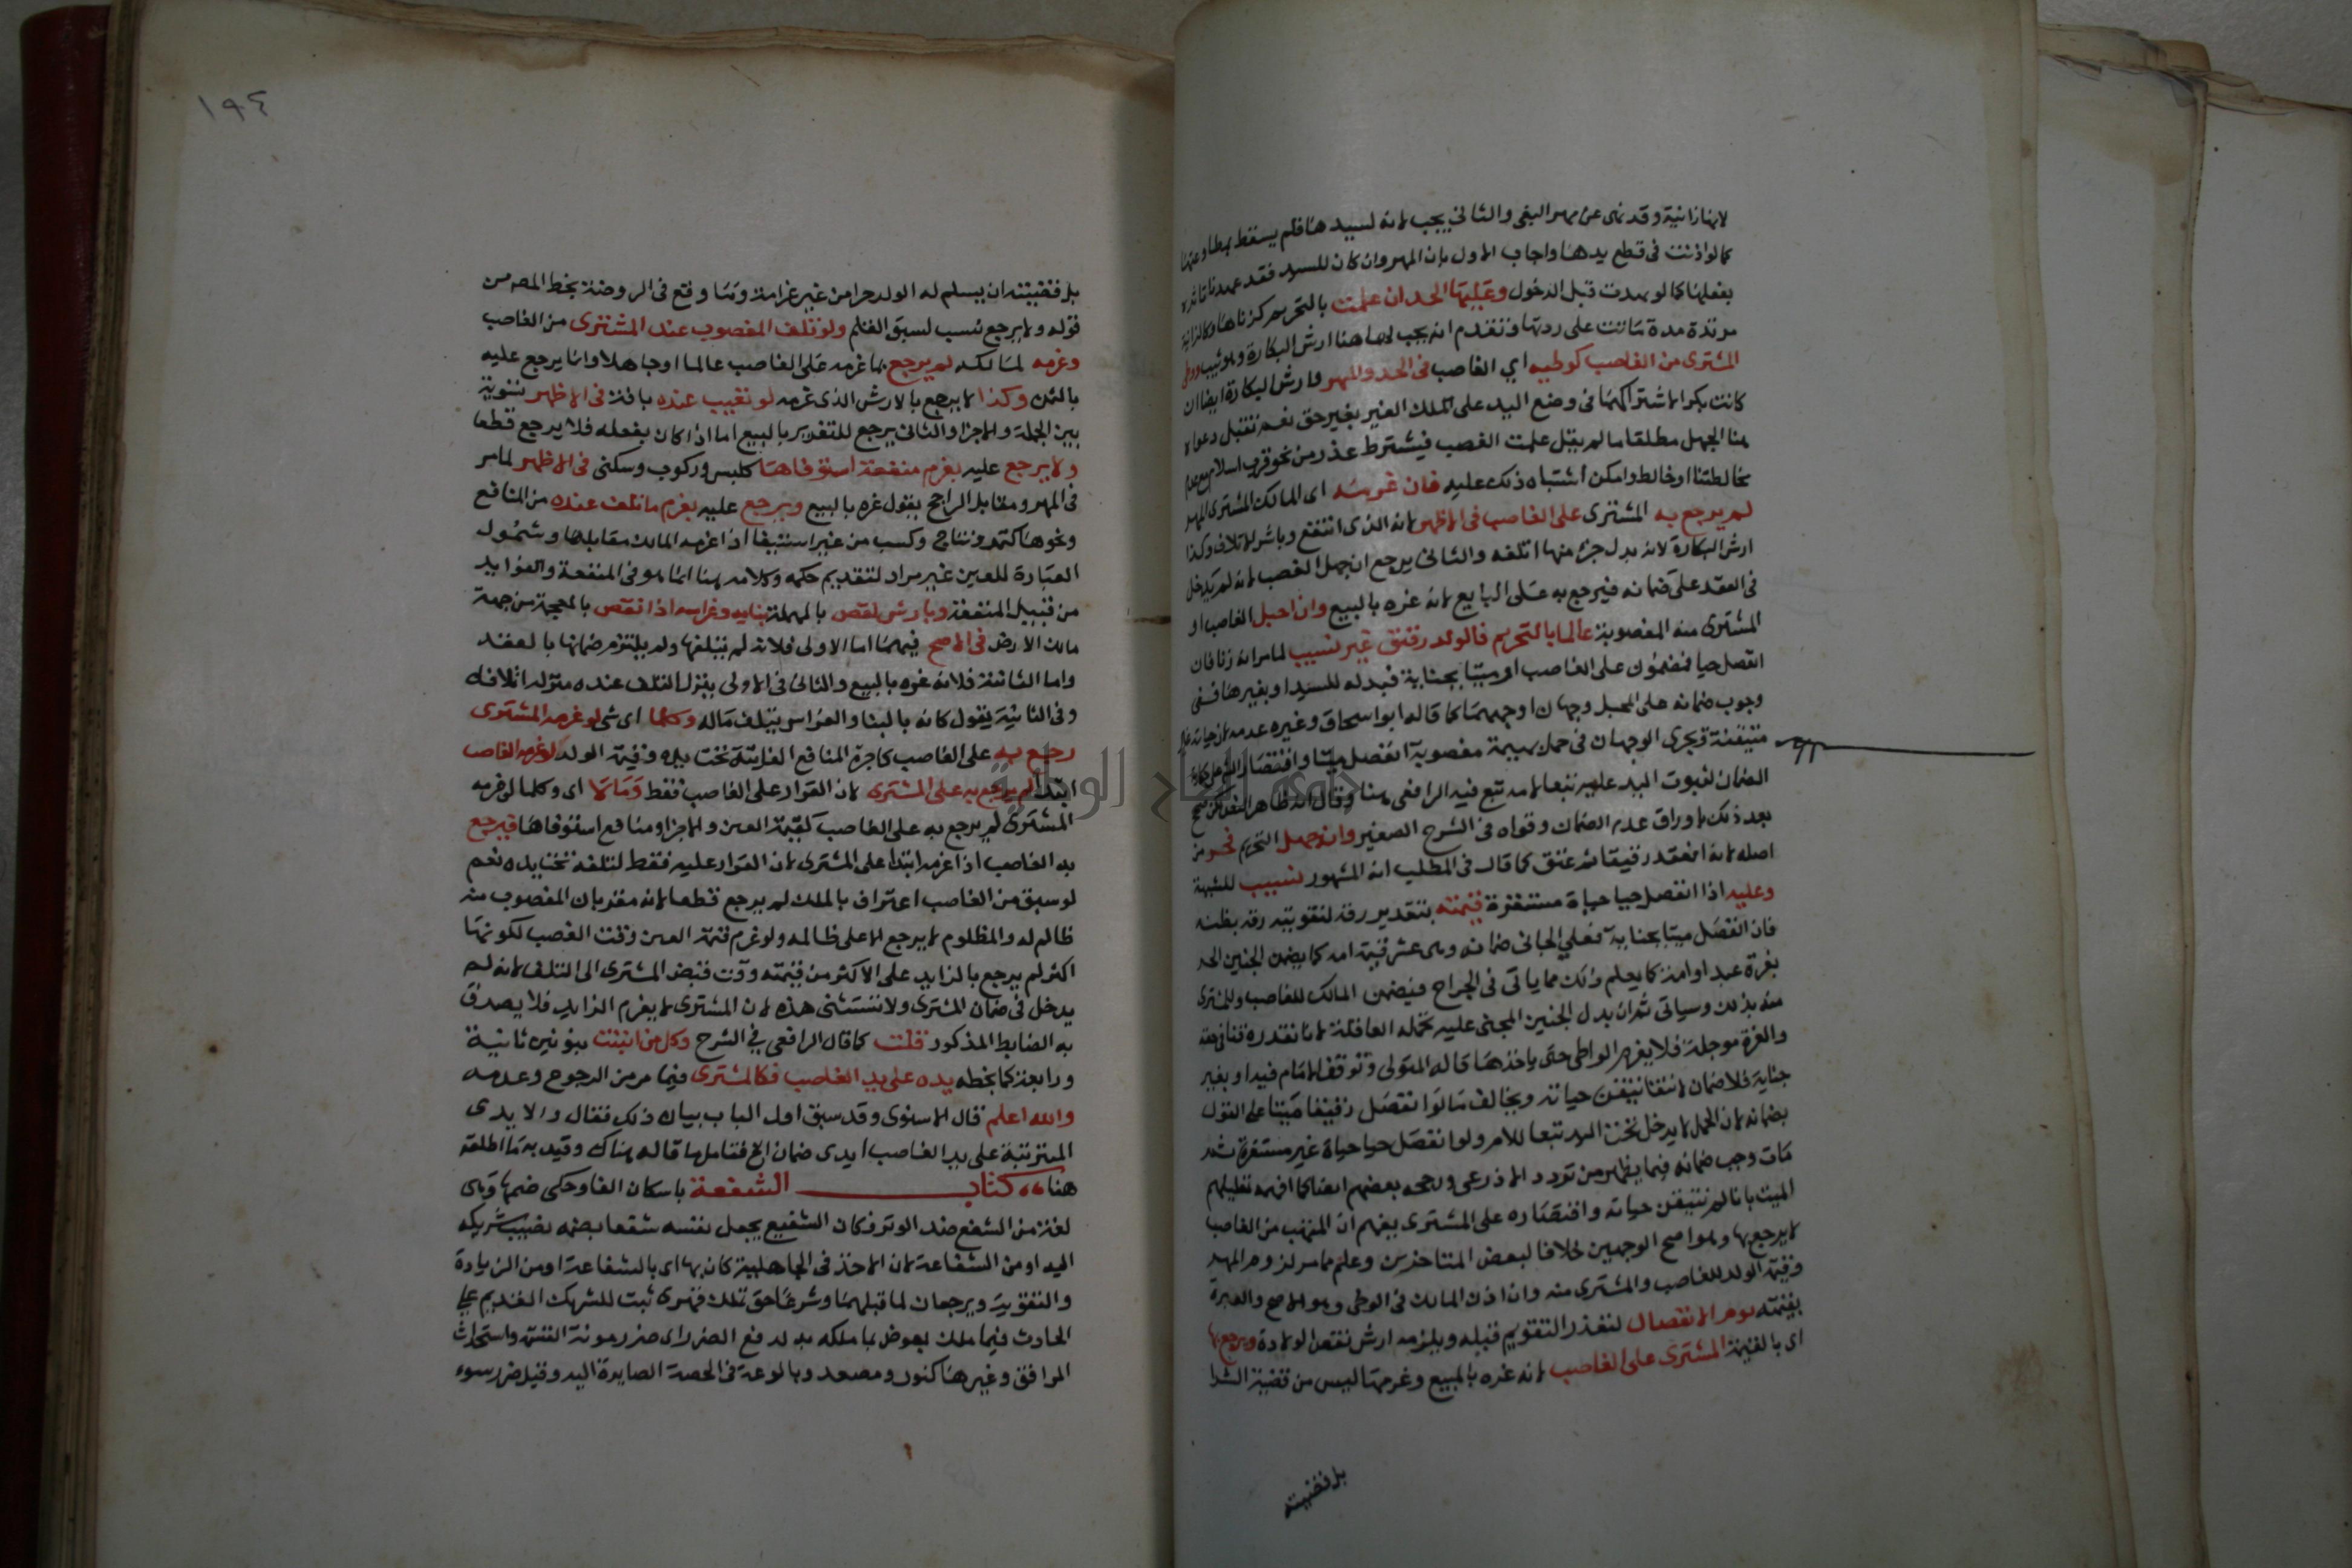 لانها زانية وقد نهى عن مهر البغي والثاني يجب لانه لسيدها فلم يسقط بمطاوعتها
كما لو اذنت في قطع يدها واجاب الاول بان المهر وان كان للسيد فقد عهدنا تاثره
بفعلها كما لو ارتدت قبل الدخول وعليها الحد ان علمت بالتحريم كزناها وكالزانية
مرتدة ماتت على ردتها وتقدم انه يجب لها هنا ارش البكارة ولو ثيب ووطئ
المشترى من الغاصب كوطيه اي الغاصب في الحد والمهر وارش البكارة ايضا ان
كانت بكرا لاشتراكهما في وضع اليد على ملك الغير بغير حق نعم تقبل دعواه
هنا الجهل مطلقا ما لم يقل علمت الغصب فيشترط عذر من نحو قرب اسلام مع عدم
مخالطتنا او خالط وامكن اشتباه ذلك عليه فان غرمه اى المالك المشترى المهر
لم يرجع به المشترى على الغاصب في الاظهر لانه الذى انتفع وباشر الاتلاف وكذا
ارش البكارة لانه بدل جزء منها اتلفه والثاني يرجع ان جهل الغصب لانه لم يدخل
في العقد على ضمانه فيرجع به على البايع لانه غره بالبيع وان احبل الغاصب او
المشترى منه المغصوبة عالما بالتحريم فالولد رقيق غير نسيب لما مر انه زنا فان
انفصل حيا فمضمون على الغاصب او ميتا بجناية فبدله للسيد او بغيرها ففى
وجوب ضمانه على المحبل وجهان اوجههما كما قاله ابو اسحاق وغيره عدمه لان حياته غير
متيقنة ويجرى الوجهان في حمل بهيمة مغصوبة انفصل ميتا واقتصار الشارح على حكاية
الضمان لثبوت اليد عليه تبعا لامه تبع فيه الرافعى هنا وقال انه ظاهر النص لكن صحح
بعد ذلك باوراق عدم الضمان وقواه في الشرح الصغير وان جهل التحريم فحر من
اصله لا انه انعقد رقيقا ثم عتق كما قال في المطلب انه المشهور نسيب للشبهة
وعليه اذا انفصل حيا حياة مستقرة قيمته بتقدير رقه لتفويته رقه بظنه
فان انفصل ميتا بجناية فعلى الجانى ضمانه وهى عشر قيمة امه كما يضمن الجنين الحر
بغرة عبد او امة كما يعلم ذلك مما ياتى في الجراح فيضمن المالك للغاصب وللمشترى
منه بذلك وسياتى ثم ان بدل الجنين المجنى عليه تحمله العاقلة لانا نقدره قنا في حقه
والغرة موجلة فلا يغرم الواطى حتى ياخذها قاله المتولى وتوقف الامام فيه او بغير
جناية فلا ضمان لانتفا تيقن حياته ويخالف ما لو انفصل رقيقا ميتا على القول
بضمانه لان الحمل لا يدخل تحت اليد تبعا للام ولو انفصل حيا حياة غير مستقرة ثم
مات وجب ضمانه فيما يظهر من تردد الاذرعى ورجحه بعضهم ايضا كما افهمه تعليلهم
الميت بانا لم نتيقن حياته واقتصاره على المشترى يفهم ان المتهب من الغاصب
لا يرجع بها وهو اصح الوجهين خلافا لبعض المتاخرين وعلم مما مر لزوم المهر
وقيمة الولد للغاصب والمشترى منه وان اذن المالك في الوطى وهو الاصح والعبرة
بقيمته يوم الانفصال لتعذر التقويم قبله ويلزمه ارش نقص الولادة ويرجع بها
اى بالقيمة المشترى على الغاصب لانه غره بالبيع وغرمها ليس من قضية الشرا
بل قضيته
١٩٤
بل قضيته ان يسلم له الولد حرا من غير غرامة وما وقع في الروضة بخط المص من
قوله ولا يرجع نسب لسبق القلم ولو تلف المغصوب عند المشترى من الغاصب
وغرمه لمالكه لم يرجع بما غرمه على الغاصب عالما او جاهلا وانما يرجع عليه
بالثمن وكذا لا يرجع بالارش الذى غرمه لو تعيب عنده بافة في الاظهر تسوية
بين الجملة والاجزا والثانى يرجع للتغرير بالبيع اما اذا كان بفعله فلا يرجع قطعا
ولا يرجع عليه بغرم منفعة استوفاها كلبس وركوب وسكنى في الاظهر لما مر
في المهر ومقابل الراجح يقول غره بالبيع ويرجع عليه بغرم ما تلف عنده من المنافع
ونحوها كثمر ونتاج وكسب من غير استيفا اذا غرمه المالك مقابلها وشمول
العبارة للعين غير مراد لتقديم حكمه وكلامه هنا انما هو في المنفعة والفوايد
من قبيل المنفعة وبارش نقص بالمهملة بنايه وغراسه اذا نقص بالمعجمة من جهة
مالك الارض في الاصح فيهما اما الاولى فلانه لم يتلفها ولم يلتزم ضمانها بالعقد
واما الثانية فلانه غره بالبيع والثانى في الاولى ينزل التلف عنده منزلة اتلافه
وفي الثانية يقول كانه بالبنا والغراس يتلف ماله وكلما اى شى لو غرمه المشترى
رجع به على الغاصب كاجرة المنافع الفايتة تحت يده وقيمة الولد لو غرمه الغاصب
ابتدا لم يرجع به على المشترى لان القرار على الغاصب فقط وما لا اى وكلما لو غرمه
المشترى لم يرجع به على الغاصب كقيمة العين والاجزا ومنافع استوفاها فيرجع
به الغاصب اذا غرمه ابتدا على المشترى لان القرار عليه فقط لتلفه تحت يده نعم
لو سبق من الغاصب اعتراف بالملك لم يرجع قطعا لانه مقر بان المغصوب منه
ظالم له والمظلوم لا يرجع الا على ظالمه ولو غرم قيمة العين وقت الغصب لكونها
اكثر لم يرجع بالزايد على الاكثر من قيمته وقت قبض المشترى الى التلف لانه لم
يدخل في ضمان المشترى ولا تستثنى هذه لان المشترى لا يغرم الزايد فلا يصدق
به الضابط المذكور قلت كما قال الرافعى في الشرح وكل من انبنت بنونين ثانية
ورابعة كما بخطه يده على يد الغاصب فكالمشترى فيما مر من الرجوع وعدمه
والله اعلم قال الاسنوى وقد سبق اول الباب بيان ذلك فقال والايدى
المترتبة على يد الغاصب ايدى ضمان الخ فتاملها قاله هناك وقيد به ما اطلقه
هنا كتاب الشفعة باسكان الفا وحكى ضمها وهى
لغة من الشفع ضد الوتر فكان الشفيع يجعل نفسه شفعا بضمه نصيب شريكه
اليه او من الشفاعة لان الاخذ في الجاهلية كان بها اى بالشفاعة او من الزيادة
والتقوية ويرجعان لما قبلهما وشرعا حق تملك قهرى ثبت للشريك القديم على
الحادث فيما ملك بعوض بما ملكه به لدفع الضرر اى ضرر مونة القسمة واستحداث
المرافق وغيرها كنور ومصعد وبالوعة في الحصة الصايرة اليه وقيل ضرر سوء
جامعة النجاح الوطنية